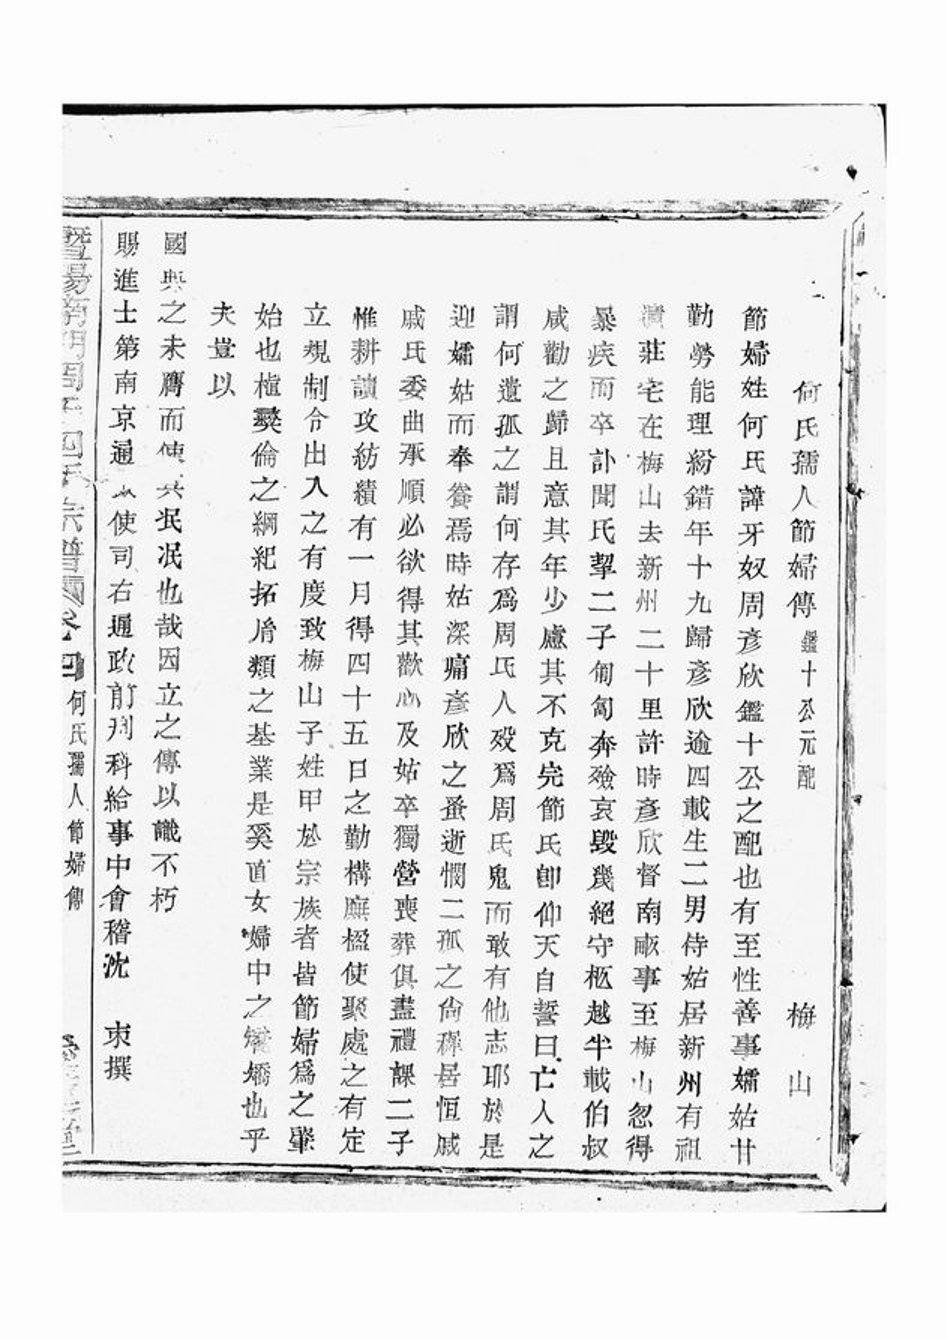 何氏孺人節婦傳 鑑十公元配 梅山
節婦姓何氏諱牙奴周彥欣鑑十公之配也有至性善事孀姑甘
勤勞能理紛錯年十九歸彥欣逾四載生二男侍姑居新州有祖
遺莊宅在梅山去新州二十里許時彥欣督南畝事至梅山忽得
暴疾而卒訃聞氏挈二子匍匐奔殮哀毀幾絕守柩越半載伯叔
咸勸之歸且意其年少慮其不克完節氏卽仰天自誓曰亡人之
謂何遺孤之謂何存爲周氏人歿爲周氏鬼而敢有他志耶於是
迎孀姑而奉養焉時姑深痛彥欣之蚤逝憫二孤之尙穉居恒戚
戚氏委曲承順必欲得其歡心及姑卒獨營喪葬俱盡禮課二子
惟耕讀攻紡績有一月得四十五日之勤構廡楹使聚處之有定
立規制令出入之有度致梅山子姓甲於宗族者皆節婦爲之肇
始也植彛倫之綱紀拓胤類之基業是奚直女婦中之矯矯也乎
夫豈以
國典之未膺而使其泯泯也哉因立之傳以識不朽
賜進士第南京通政使司右通政前刑科給事中會稽沈 束撰
暨陽南門周氏宗譜 卷四 何氏孺人節婦傳